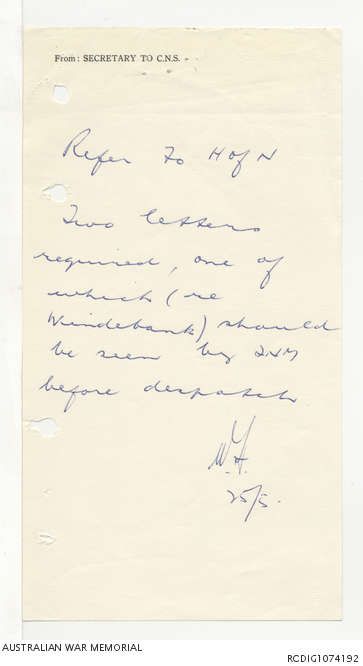 From: SECRETARY TO C.N.S.
Refer to H of N
Two letters
required, one of
which (re
Windebank) should
be seen by 2NM
before despatch.
25/5.
AUSTRALIAN WAR MEMORIAL
RCDIG1074192